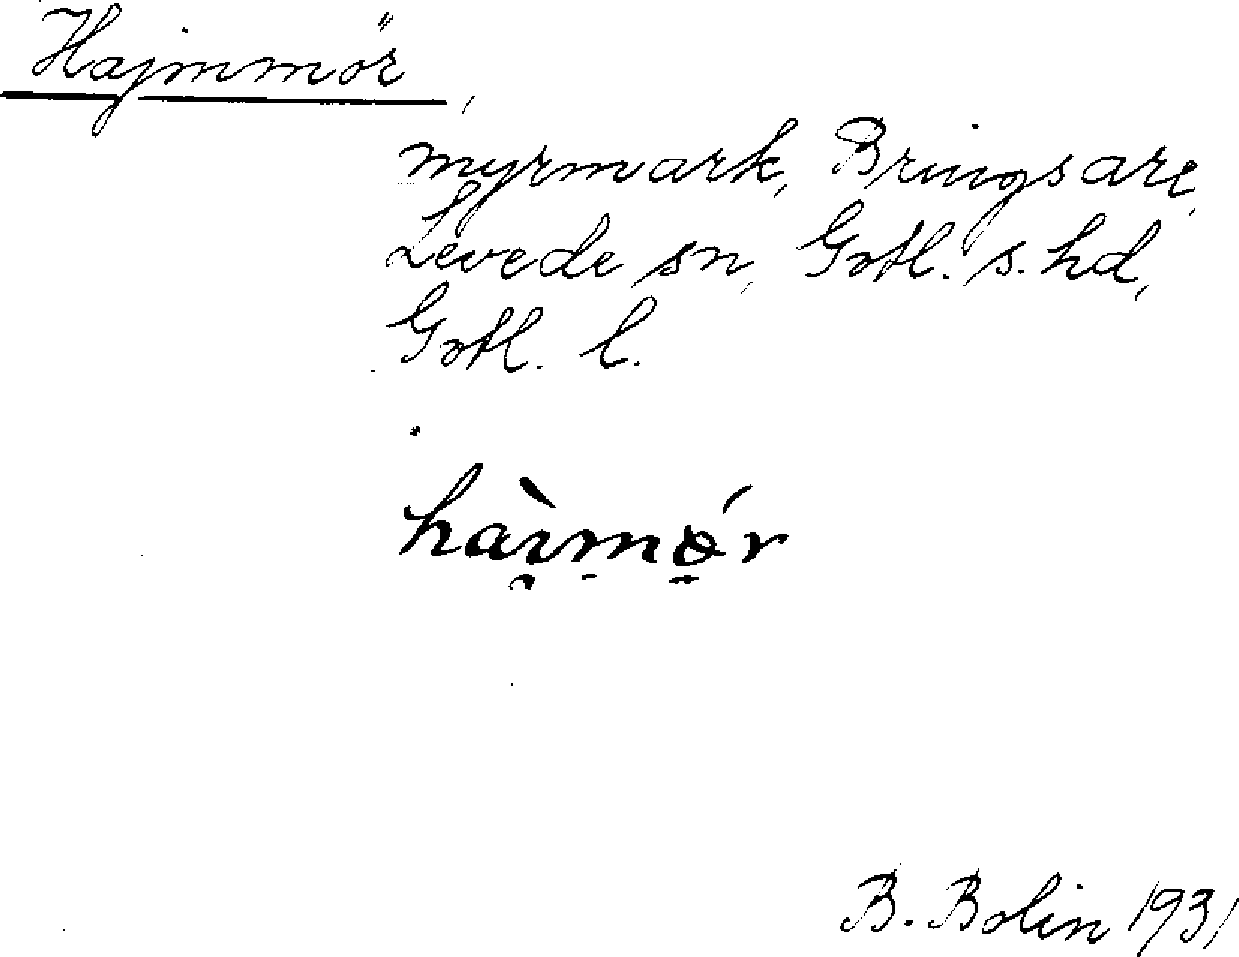 Hajmmör,
myrmark, Bringsare,
Levede sn, Gotl. s. hd,
Gotl. l.
B. Bolin 1931